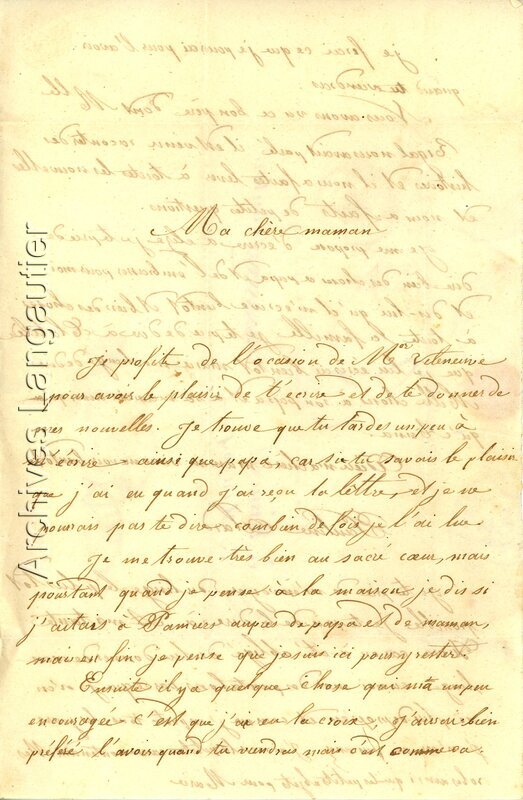 Ma chère maman
Je profite de l'occasion de Mor Vileneuve
pour avoir le plaisir de t'ecrire et de te donner de
mes nouvelles. Je trouve que tu tardes un peu à
m'ecrire ainsi que papa, car si tu savais le plaisir
que j'ai eu quand j'ai reçu ta lettre, et je ne
pourais pas te dire combien de fois je l'ai lue
Je me trouve très bien au sacré cœur, mais
pourtant quand je pense à la maison je dis si
j'aitais à Pamiers aupres de papa et de maman,
mais en fin je pense que je suis ici pour y rester.
Ensuite il y a quelque chose qui m'a un peu
encouragée c'est que j'ai eu la croix j'aurai bien
préféré l'avoir quand tu viendras mais c'est comme ca.
Archives Langautier